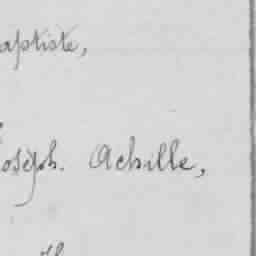 aptiste,
oseph. Achille,